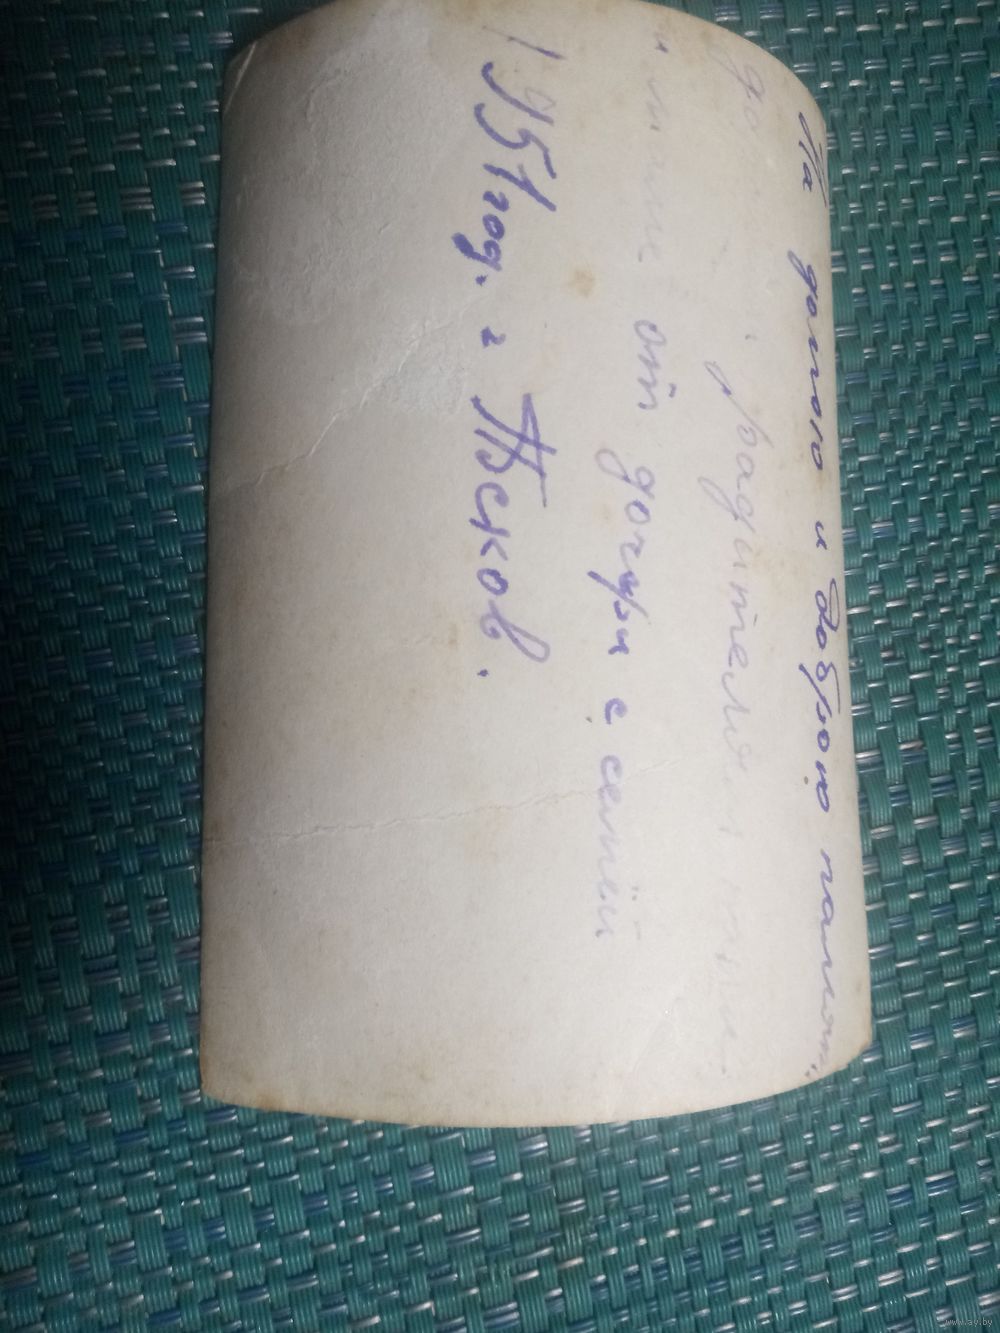 На долгою и доброю память
радителям
от дочери с семьёй
1951 год. г Псков.
www.ay.by